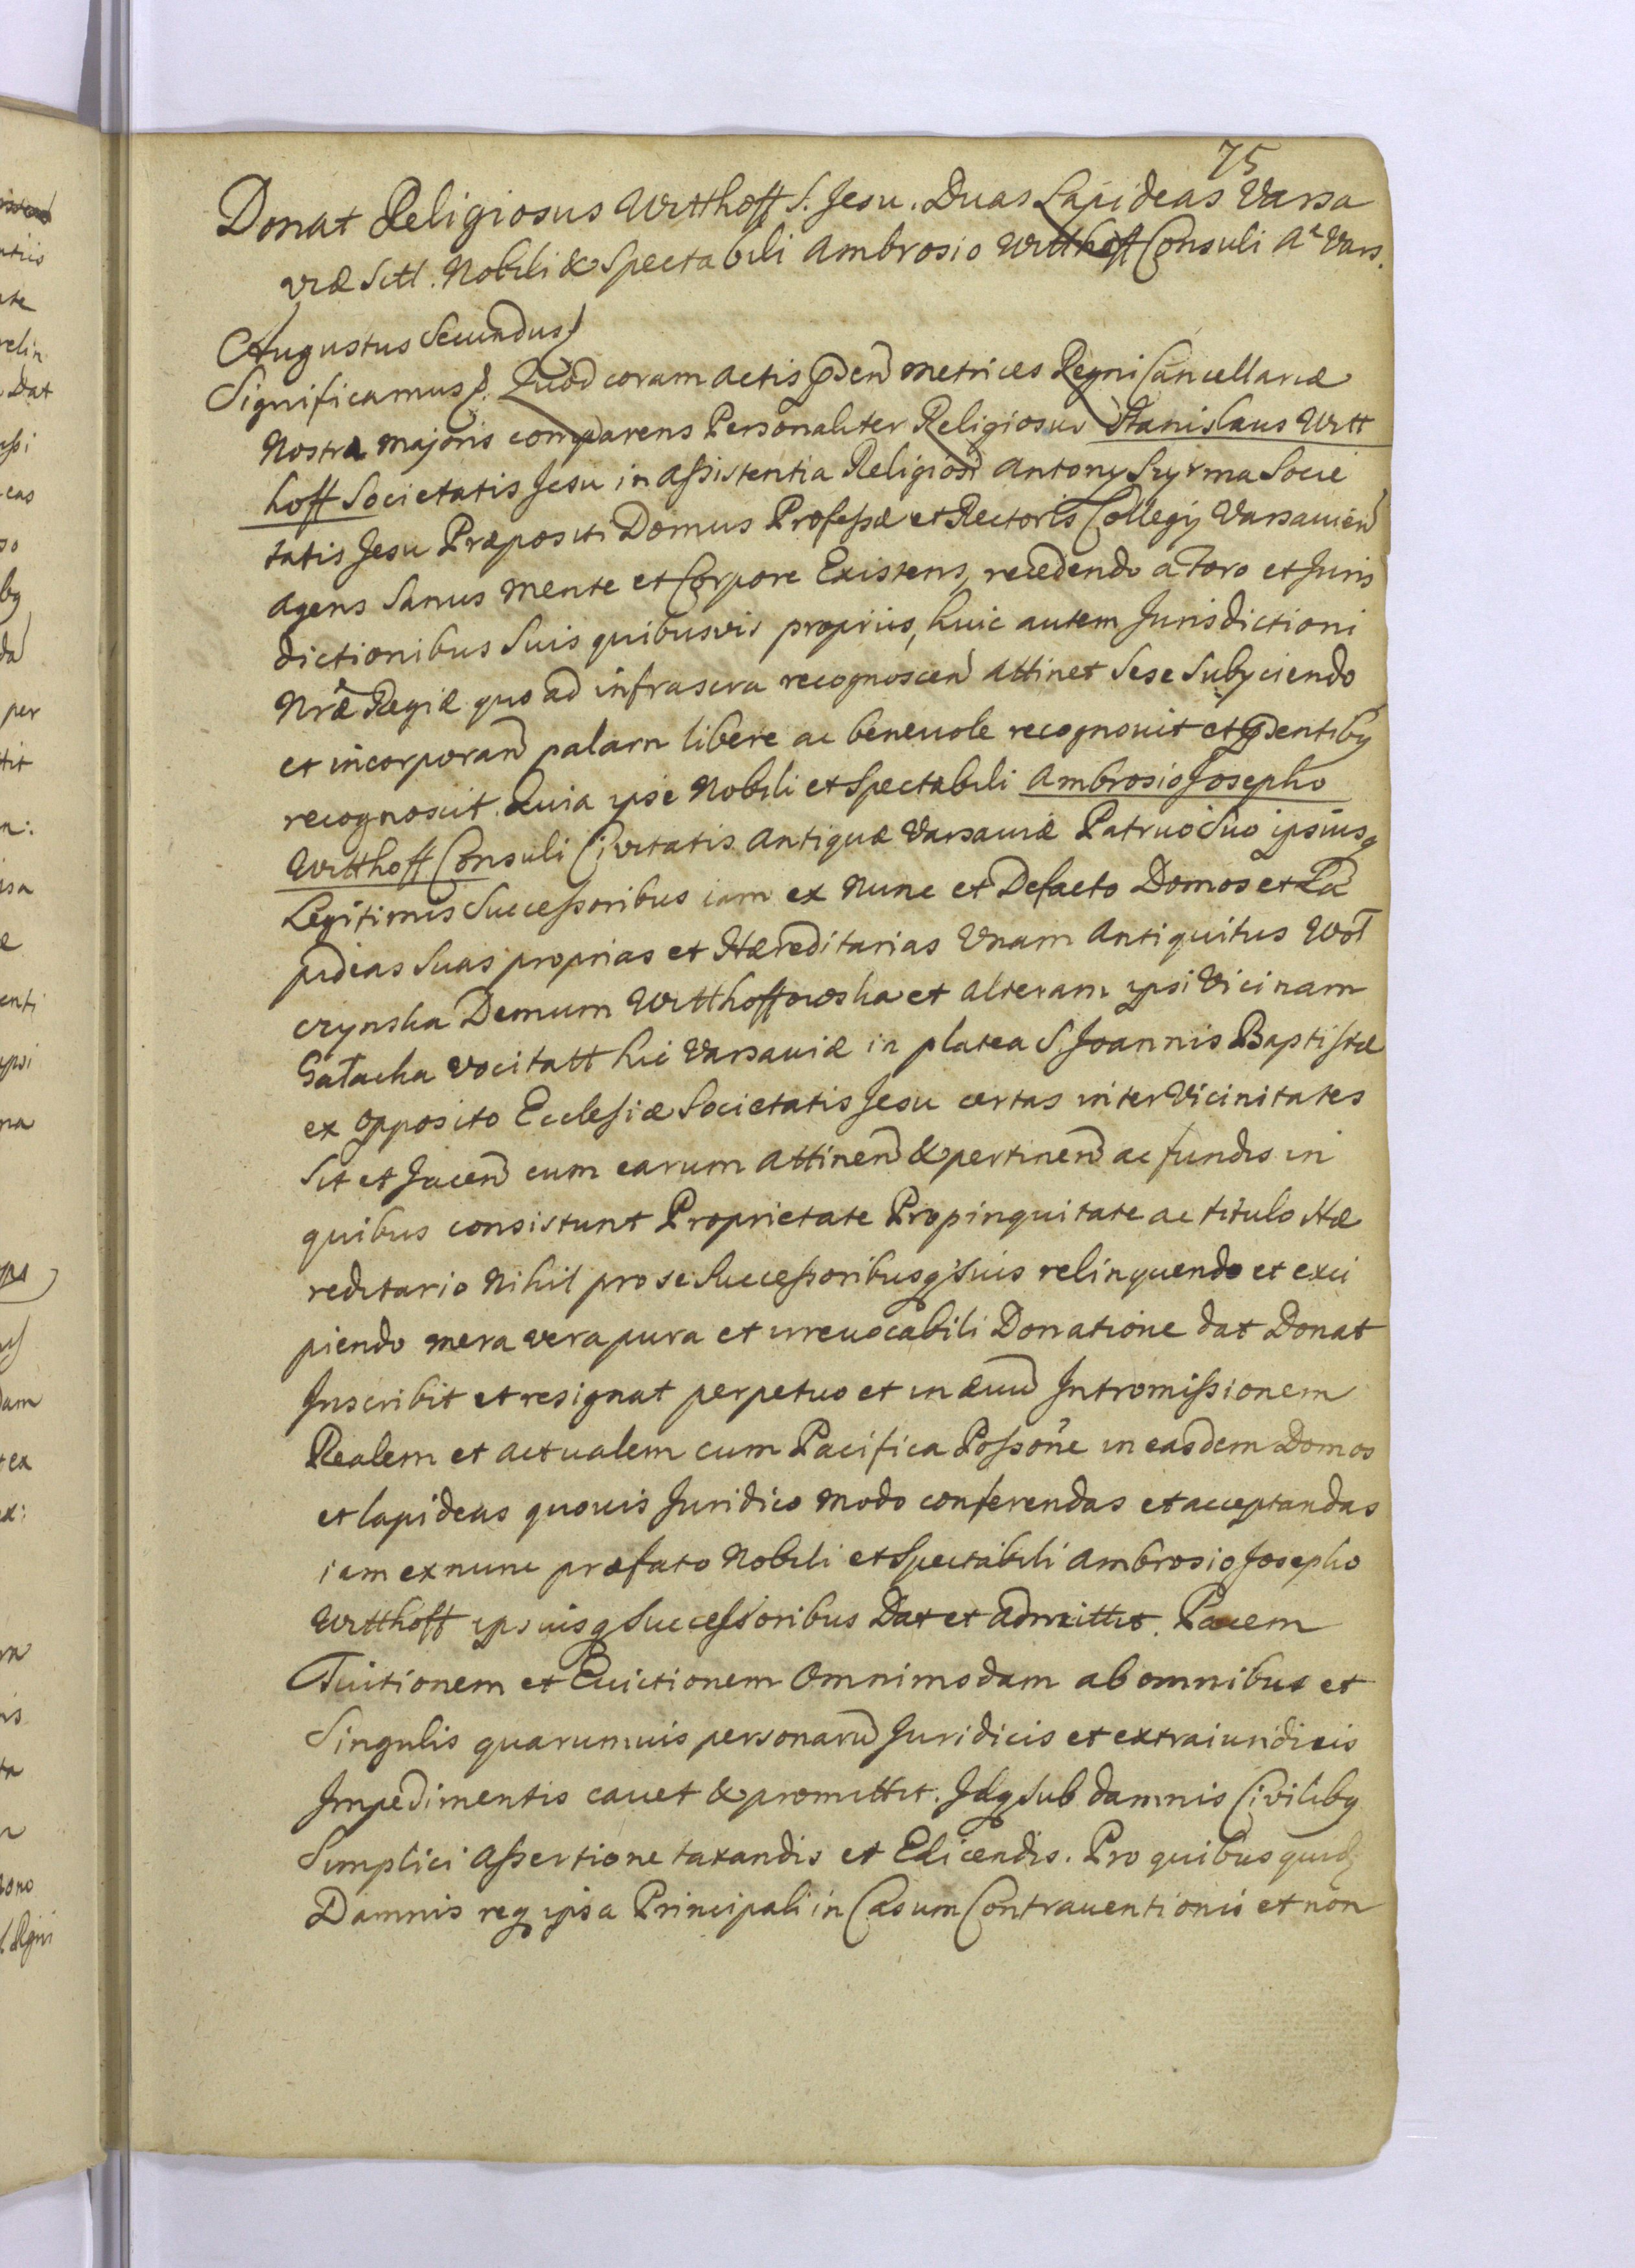 75
Donat Religiosus Witthoff S. Jesu. Duas Lapideas Varsa
viæ Sitt. Nobili & Spectabili Ambrosio Witthoff Consuli A^e Vars.
Augustus Secundus
Significamus Quod coram Actis p̃den̄ Metrices Regni Cancellariæ
Nostra Majoris comparens Personaliter Religiosus Stanislaus Witt
hoff Societatis Jesu in Assistentia Religiosi Antony Szyrma Socie
tatis Jesu Præpositi Domus Professæ et Rectoris Collegij Varsavien̄
agens Sanus mente et Corpore Existens, recedendo a Foro et Juris
dictionibus Suis quibusvis proprijs, huic autem Jurisdictioni
Nræ̃ Regiæ quo ad infrascra recognoscen̄ attinet Sese Subyciendo
et incorporan̄ palam libere ac benevole recognovit et p̃dentibq
recognoscit. Quia ipse Nobili et Spectabili Ambrosio Josepho
Witthoff Consuli Civitatis Antiquæ Varsaviæ Patruo Suo ipsiusq
Legitimis Successoribus iam ex nunc et Defacto Domos et La
pideas Suas proprias et Hæreditarias Unam Antiquitus Woł
czynska Demum Witthoffowska et alteram ipsi Vicinam
Gałacka vocitatt hic Varsaviæ in platea S Joannis Baptistæ
ex opposito Ecclesiæ Societatis Jesu certas inter Vicinitates
Sit et Jacen̄ cum earum attinen̄ & pertinen̄ ac fundis in
quibus consistunt Proprietate Propinquitate ac titulo Hæ
reditario Nihil pro se Successoribusq suis relinquendo et exci
piendo mera vera pura et irrevocabili Donatione dat Donat
Inscribit et resignat perpetuo et in ævū Intromissionem
Realem et actualem cum Pacifica Possõne in easdem Domos
et lapideas quovis Juridico modo conferendas et acceptandas
iam ex nunc præfato Nobili et Spectabili Ambrosio Josepho
Witthoff ipsiusq Successoribus Dat et admittit. Pacem
Tuitionem et Evictionem Omnimodam ab omnibus et
Singulis quarumvis personarū Juridicis et extraiuridicis
Impedimentis cavet & promittit. Idq Sub damnis Civilibq
Simplici Assertione taxandis et Edicendis. Pro quibus quidē
Damnis req ipsa Principali in Casum Contraventionis et non